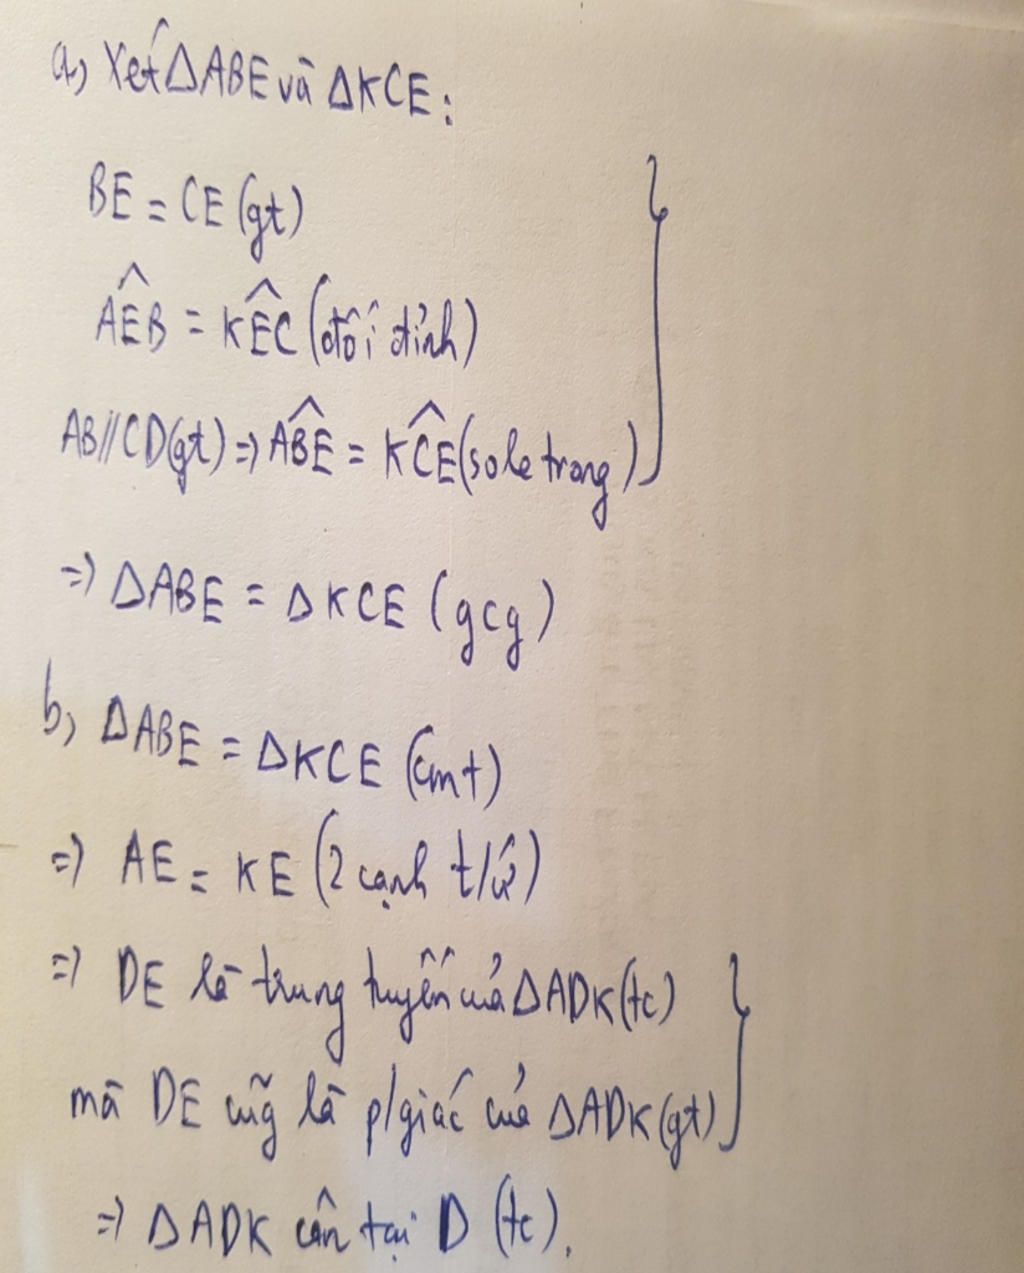 a, Xét ΔABE và ΔKCE:
BE = CE (gt)
AÊB = KÊC (đối đỉnh)
AB//CD(gt) => AB̂E = KĈE (sole trong)
=> ΔABE = ΔKCE (gcg)
b, ΔABE = ΔKCE (cmt)
=> AE = KE (2 cạnh t/ứ)
=> DE là trung tuyến của ΔADK (tc)
mà DE cũg là p/giác của ΔADK (gt)
=> ΔADK cân tại D (tc).